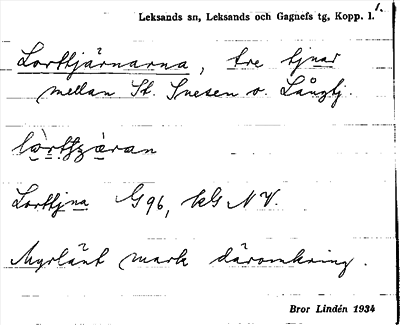 Leksands sn, Leksands och Gagnefs tg, Kopp. l. 1.
Lorttjärnarna, tre tjnar
mellan St. Snesen o. Långtj.
lòrttjæ̀ran
Lorttjna G 96, kG NV.
Myrlänt mark däromkring.
Bror Lindén 1934